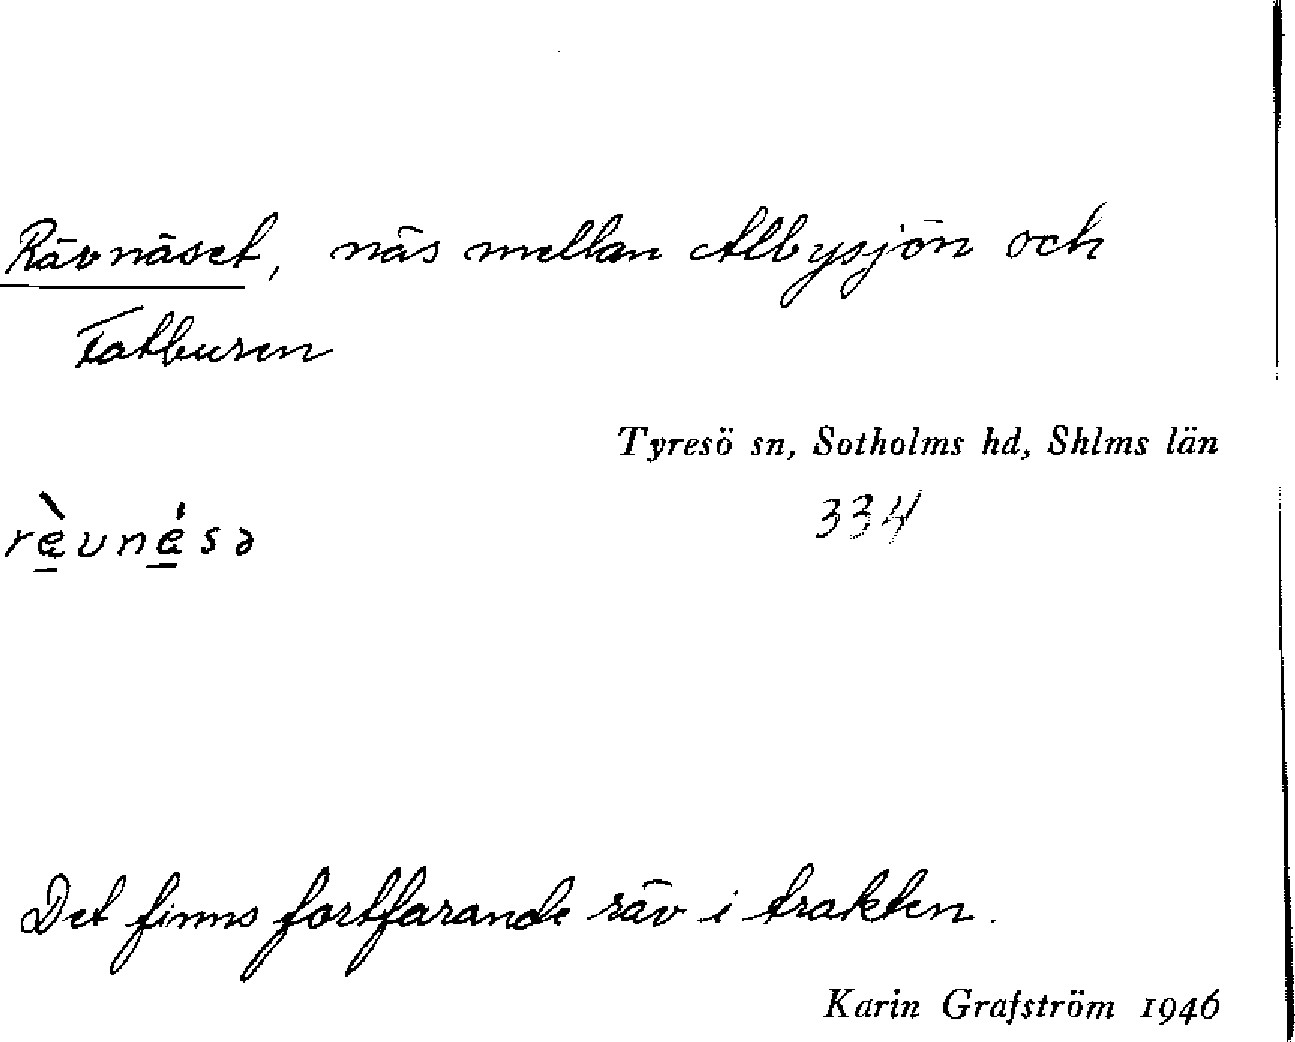 Rävnäset, näs mellan Albysjön och
Fatburen
Tyresö sn, Sotholms hd, Shlms län
rèvnésə
334
Det finns fortfarande räv i trakten.
Karin Grafström 1946